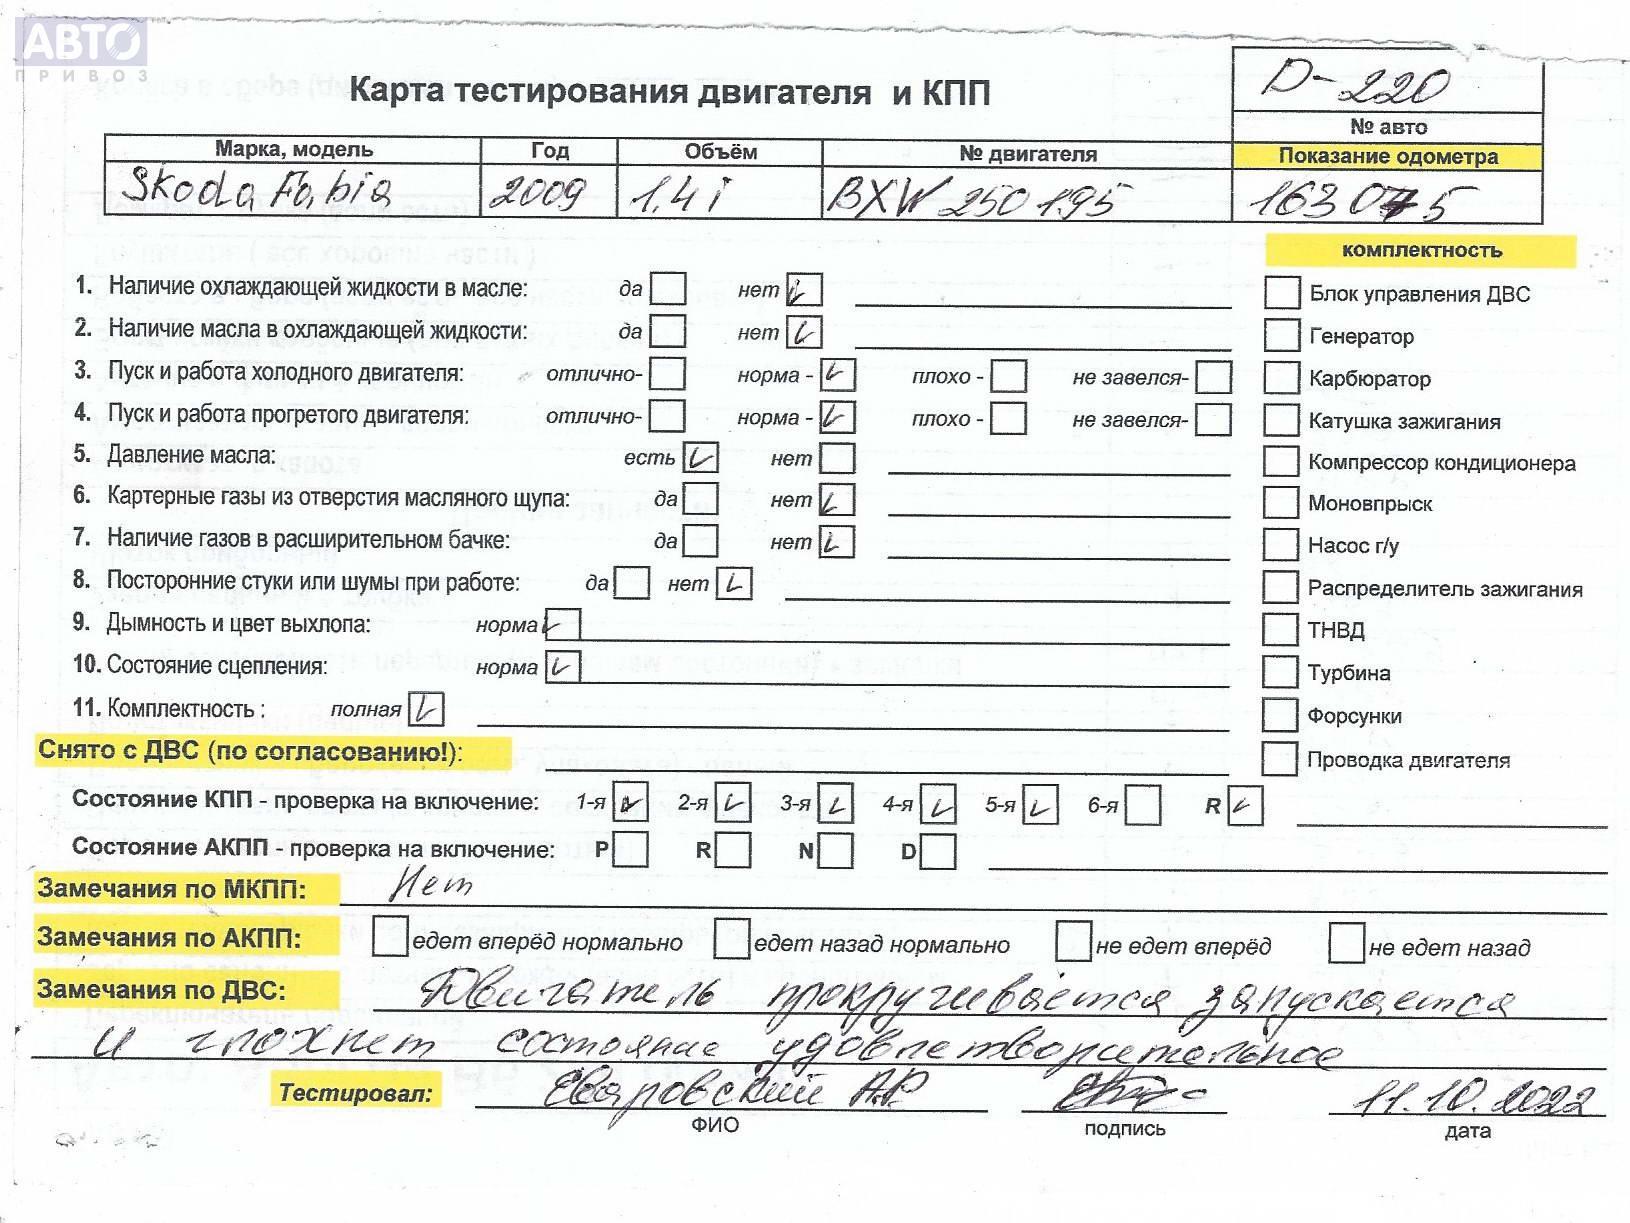 АВТО
ПРИВОЗ
D-220
Карта тестирования двигателя и КПП
№ авто
Марка, модель Год Объём № двигателя Показание одометра
Skoda Fabia 2009 1,4i BXW 250195 163075
комплектность
1. Наличие охлаждающей жидкости в масле: да нет Блок управления ДВС
2. Наличие масла в охлаждающей жидкости: да нет Генератор
3. Пуск и работа холодного двигателя: отлично- норма - плохо - не завелся- Карбюратор
4. Пуск и работа прогретого двигателя: отлично- норма - плохо - не завелся- Катушка зажигания
5. Давление масла: есть нет Компрессор кондиционера
6. Картерные газы из отверстия масляного щупа: да нет Моновпрыск
7. Наличие газов в расширительном бачке: да нет Насос г/у
8. Посторонние стуки или шумы при работе: да нет Распределитель зажигания
9. Дымность и цвет выхлопа: норма ТНВД
10. Состояние сцепления: норма Турбина
11. Комплектность : полная Форсунки
Снято с ДВС (по согласованию!): Проводка двигателя
Состояние КПП - проверка на включение: 1-я 2-я 3-я 4-я 5-я 6-я R
Состояние АКПП - проверка на включение: P R N D
Замечания по МКПП: Нет
Замечания по АКПП: едет вперёд нормально едет назад нормально не едет вперёд не едет назад
Замечания по ДВС: Двигатель прокручивается запускается
и глохнет состояние удовлетворительное
Тестировал: А.Р. 11.10.2022
ФИО подпись дата